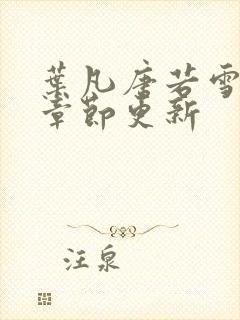 葉凡唐若雪
章節更新
汪泉